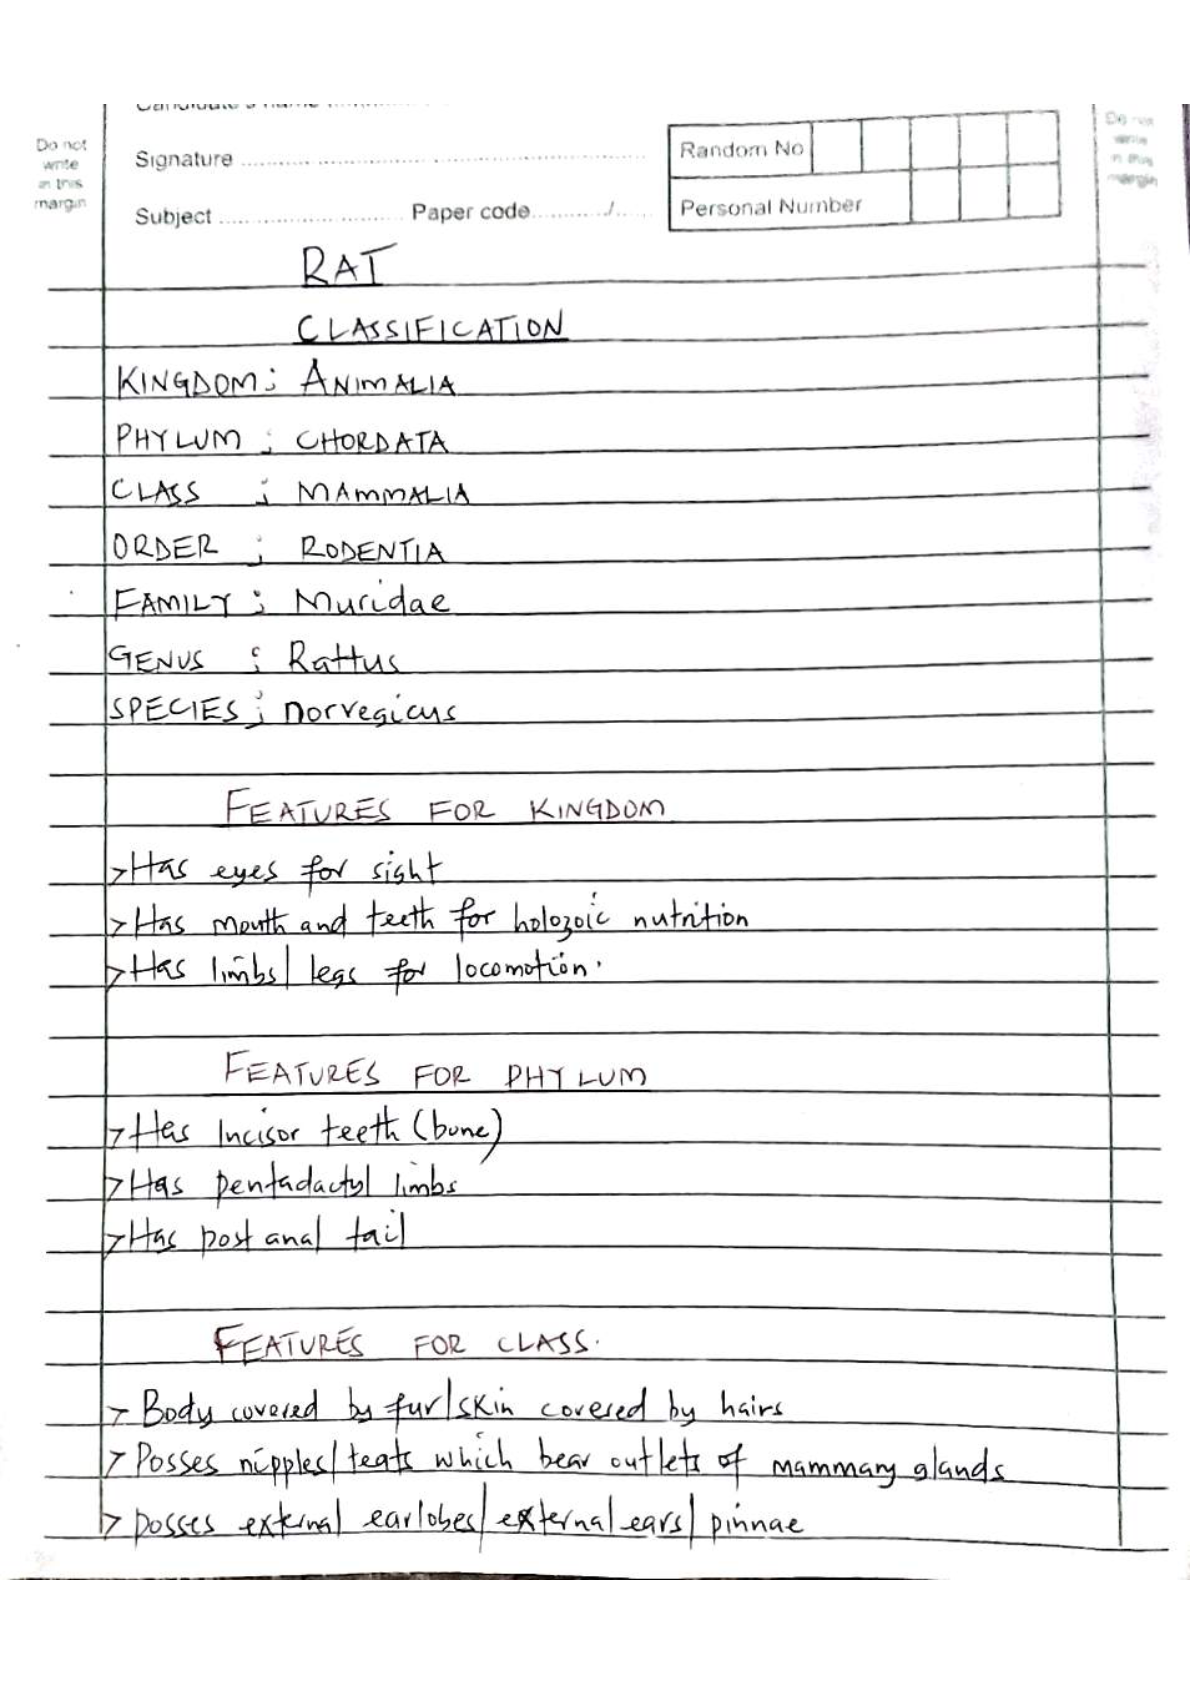 Do not
write
in this
margin
Signature
Random No
Subject Paper code / 
Personal Number
RAT
CLASSIFICATION
KINGDOM; ANIMALIA
PHYLUM ; CHORDATA
CLASS ; MAMMALIA
ORDER ; RODENTIA
FAMILY ; Muridae
GENUS ; Rattus
SPECIES ; norvegicus
FEATURES FOR KINGDOM
>Has eyes for sight
>Has mouth and teeth for holozoic nutrition
>Has limbs/legs for locomotion.
FEATURES FOR PHYLUM
>Has Incisor teeth (bone)
>Has pentadactyl limbs
>Has post anal tail
FEATURES FOR CLASS.
> Body covered by fur/skin covered by hairs
> Posses nipples/teats which bear outlets of mammary glands
> posses external earlobes/external ears/pinnae